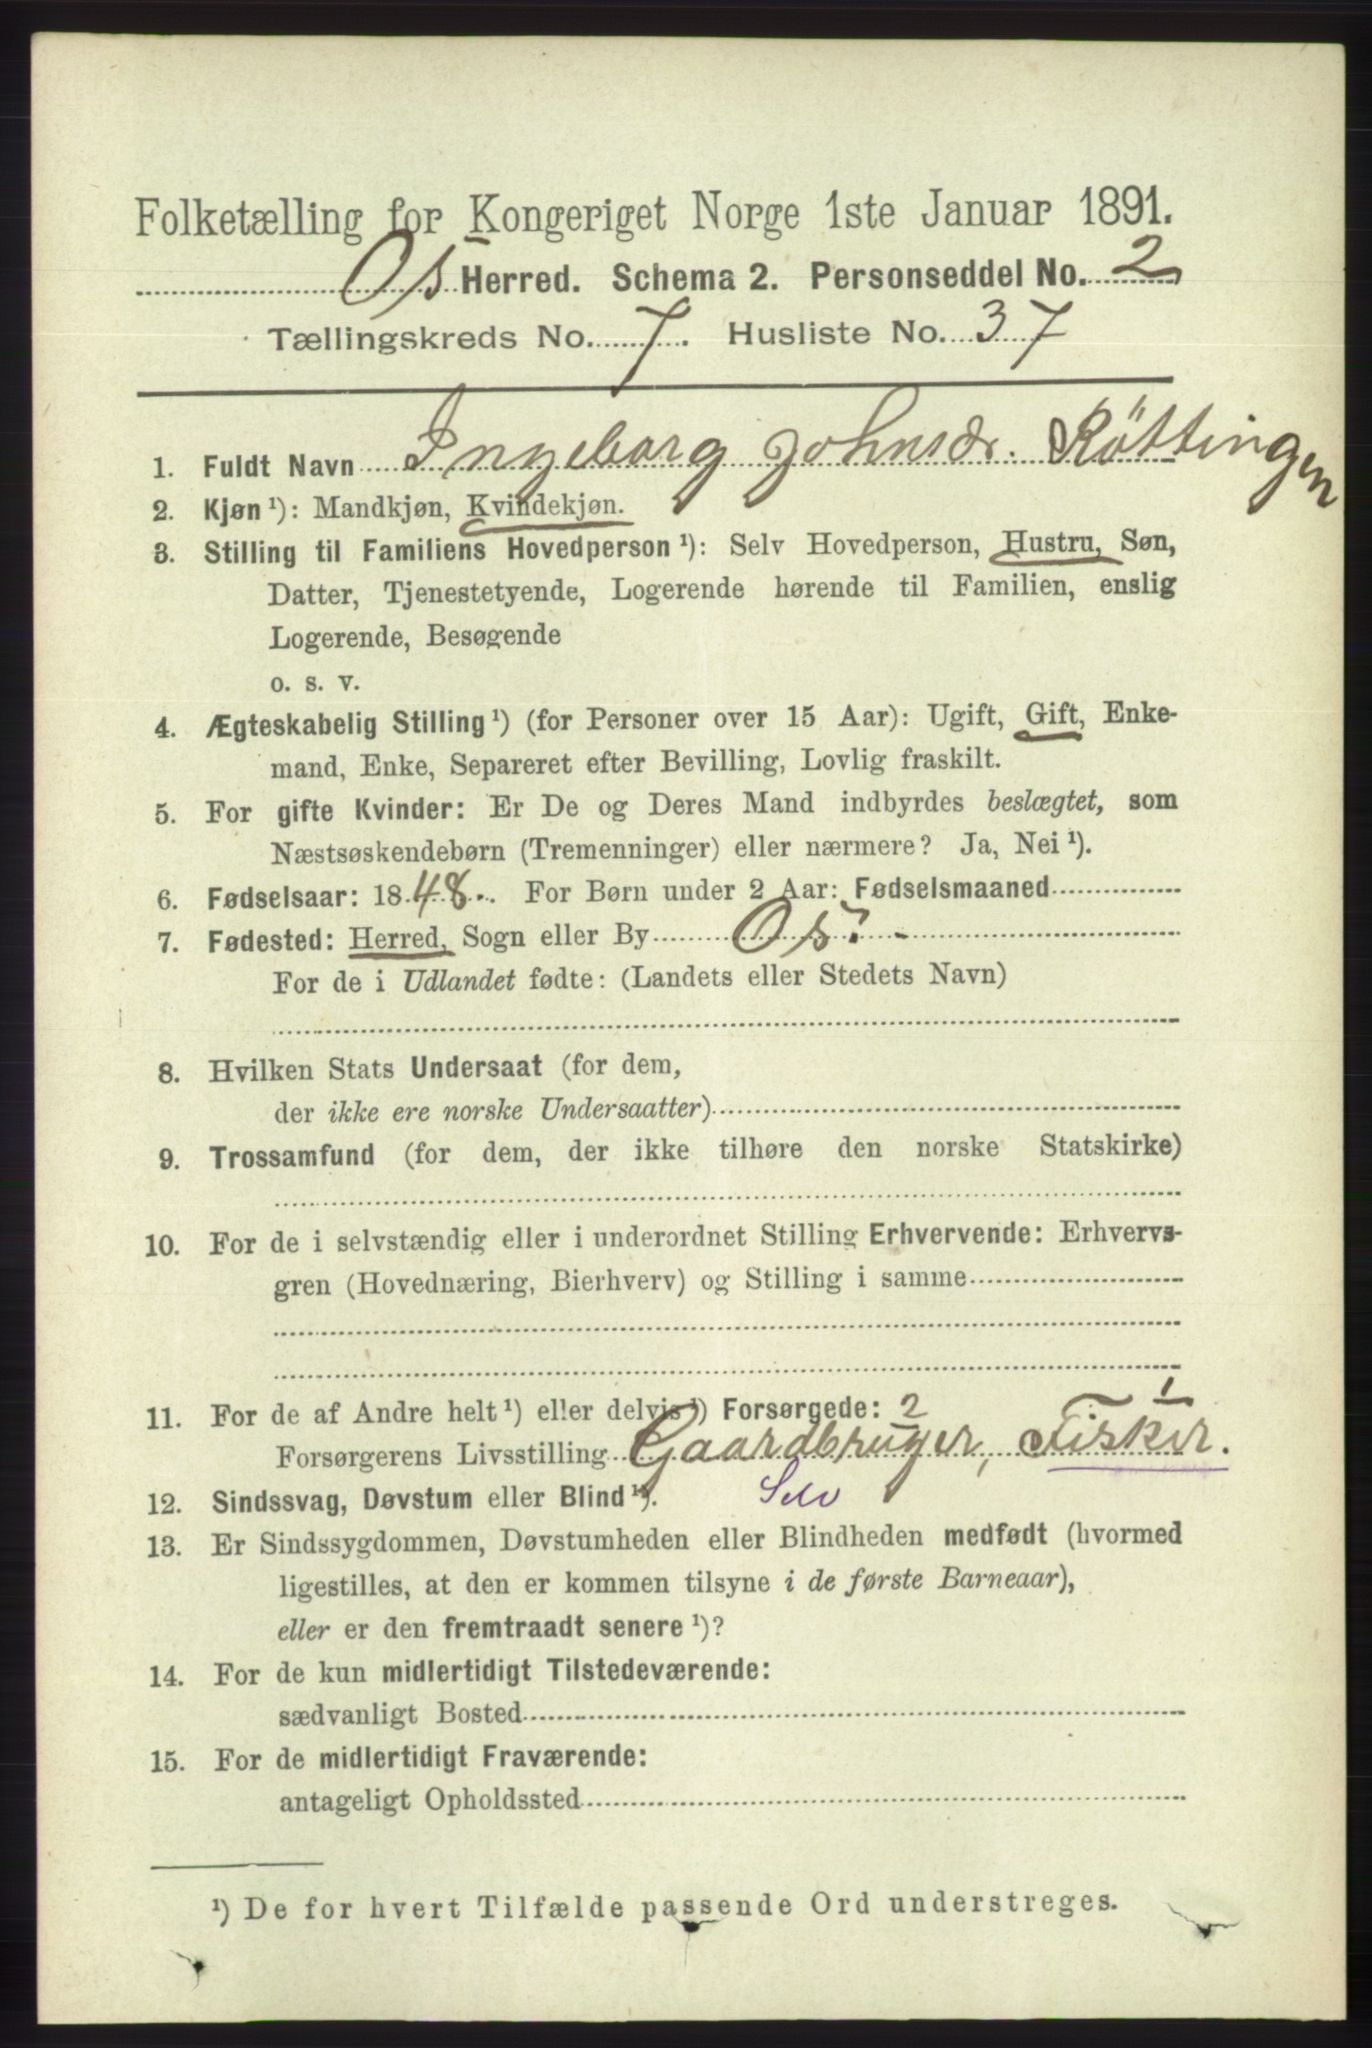 Folketælling for Kongeriget Norge 1ste Januar 1891.
Os Herred. Schema 2. Personseddel No. 2
Tællingskreds No. 7. Husliste No. 37
1. Fuldt Navn Ingeborg Johnsdr. Röttingen
2. Kjøn ¹): Mandkjøn, Kvindekjøn.
3. Stilling til Familiens Hovedperson ¹): Selv Hovedperson, Hustru, Søn,
Datter, Tjenestetyende, Logerende hørende til Familien, enslig
Logerende, Besøgende
o. s. v.
4. Ægteskabelig Stilling ¹) (for Personer over 15 Aar): Ugift, Gift, Enke-
mand, Enke, Separeret efter Bevilling, Lovlig fraskilt.
5. For gifte Kvinder: Er De og Deres Mand indbyrdes beslægtet, som
Næstsøskendebørn (Tremenninger) eller nærmere? Ja, Nei ¹).
6. Fødselsaar: 1848. For Børn under 2 Aar: Fødselsmaaned
7. Fødested: Herred, Sogn eller By Os.
For de i Udlandet fødte: (Landets eller Stedets Navn)
8. Hvilken Stats Undersaat (for dem,
der ikke ere norske Undersaatter)
9. Trossamfund (for dem, der ikke tilhøre den norske Statskirke)
10. For de i selvstændig eller i underordnet Stilling Erhvervende: Erhvervs-
gren (Hovednæring, Bierhverv) og Stilling i samme
11. For de af Andre helt ¹) eller delvis ¹) Forsørgede: 2 1
Forsørgerens Livsstilling Gaardbruger, Fisker.
12. Sindssvag, Døvstum eller Blind ¹). Selv
13. Er Sindssygdommen, Døvstumheden eller Blindheden medfødt (hvormed
ligestilles, at den er kommen tilsyne i de første Barneaar),
eller er den fremtraadt senere ¹)?
14. For de kun midlertidigt Tilstedeværende:
sædvanligt Bosted
15. For de midlertidigt Fraværende:
antageligt Opholdssted
¹) De for hvert Tilfælde passende Ord understreges.